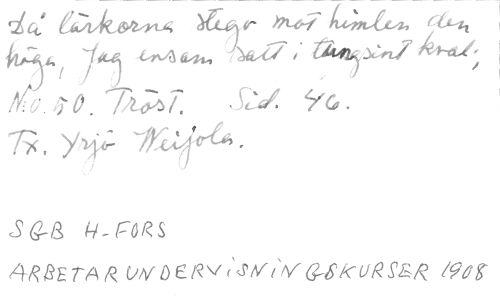 Då lärkorna stego mot himlen den
höga, Jag ensam satt i tungsint kval;
No. 50. Tröst. Sid. 46.
Tx. Yrjö Weijola.
SGB H-FORS
ARBETARUNDERVISNINGSKURSER 1908